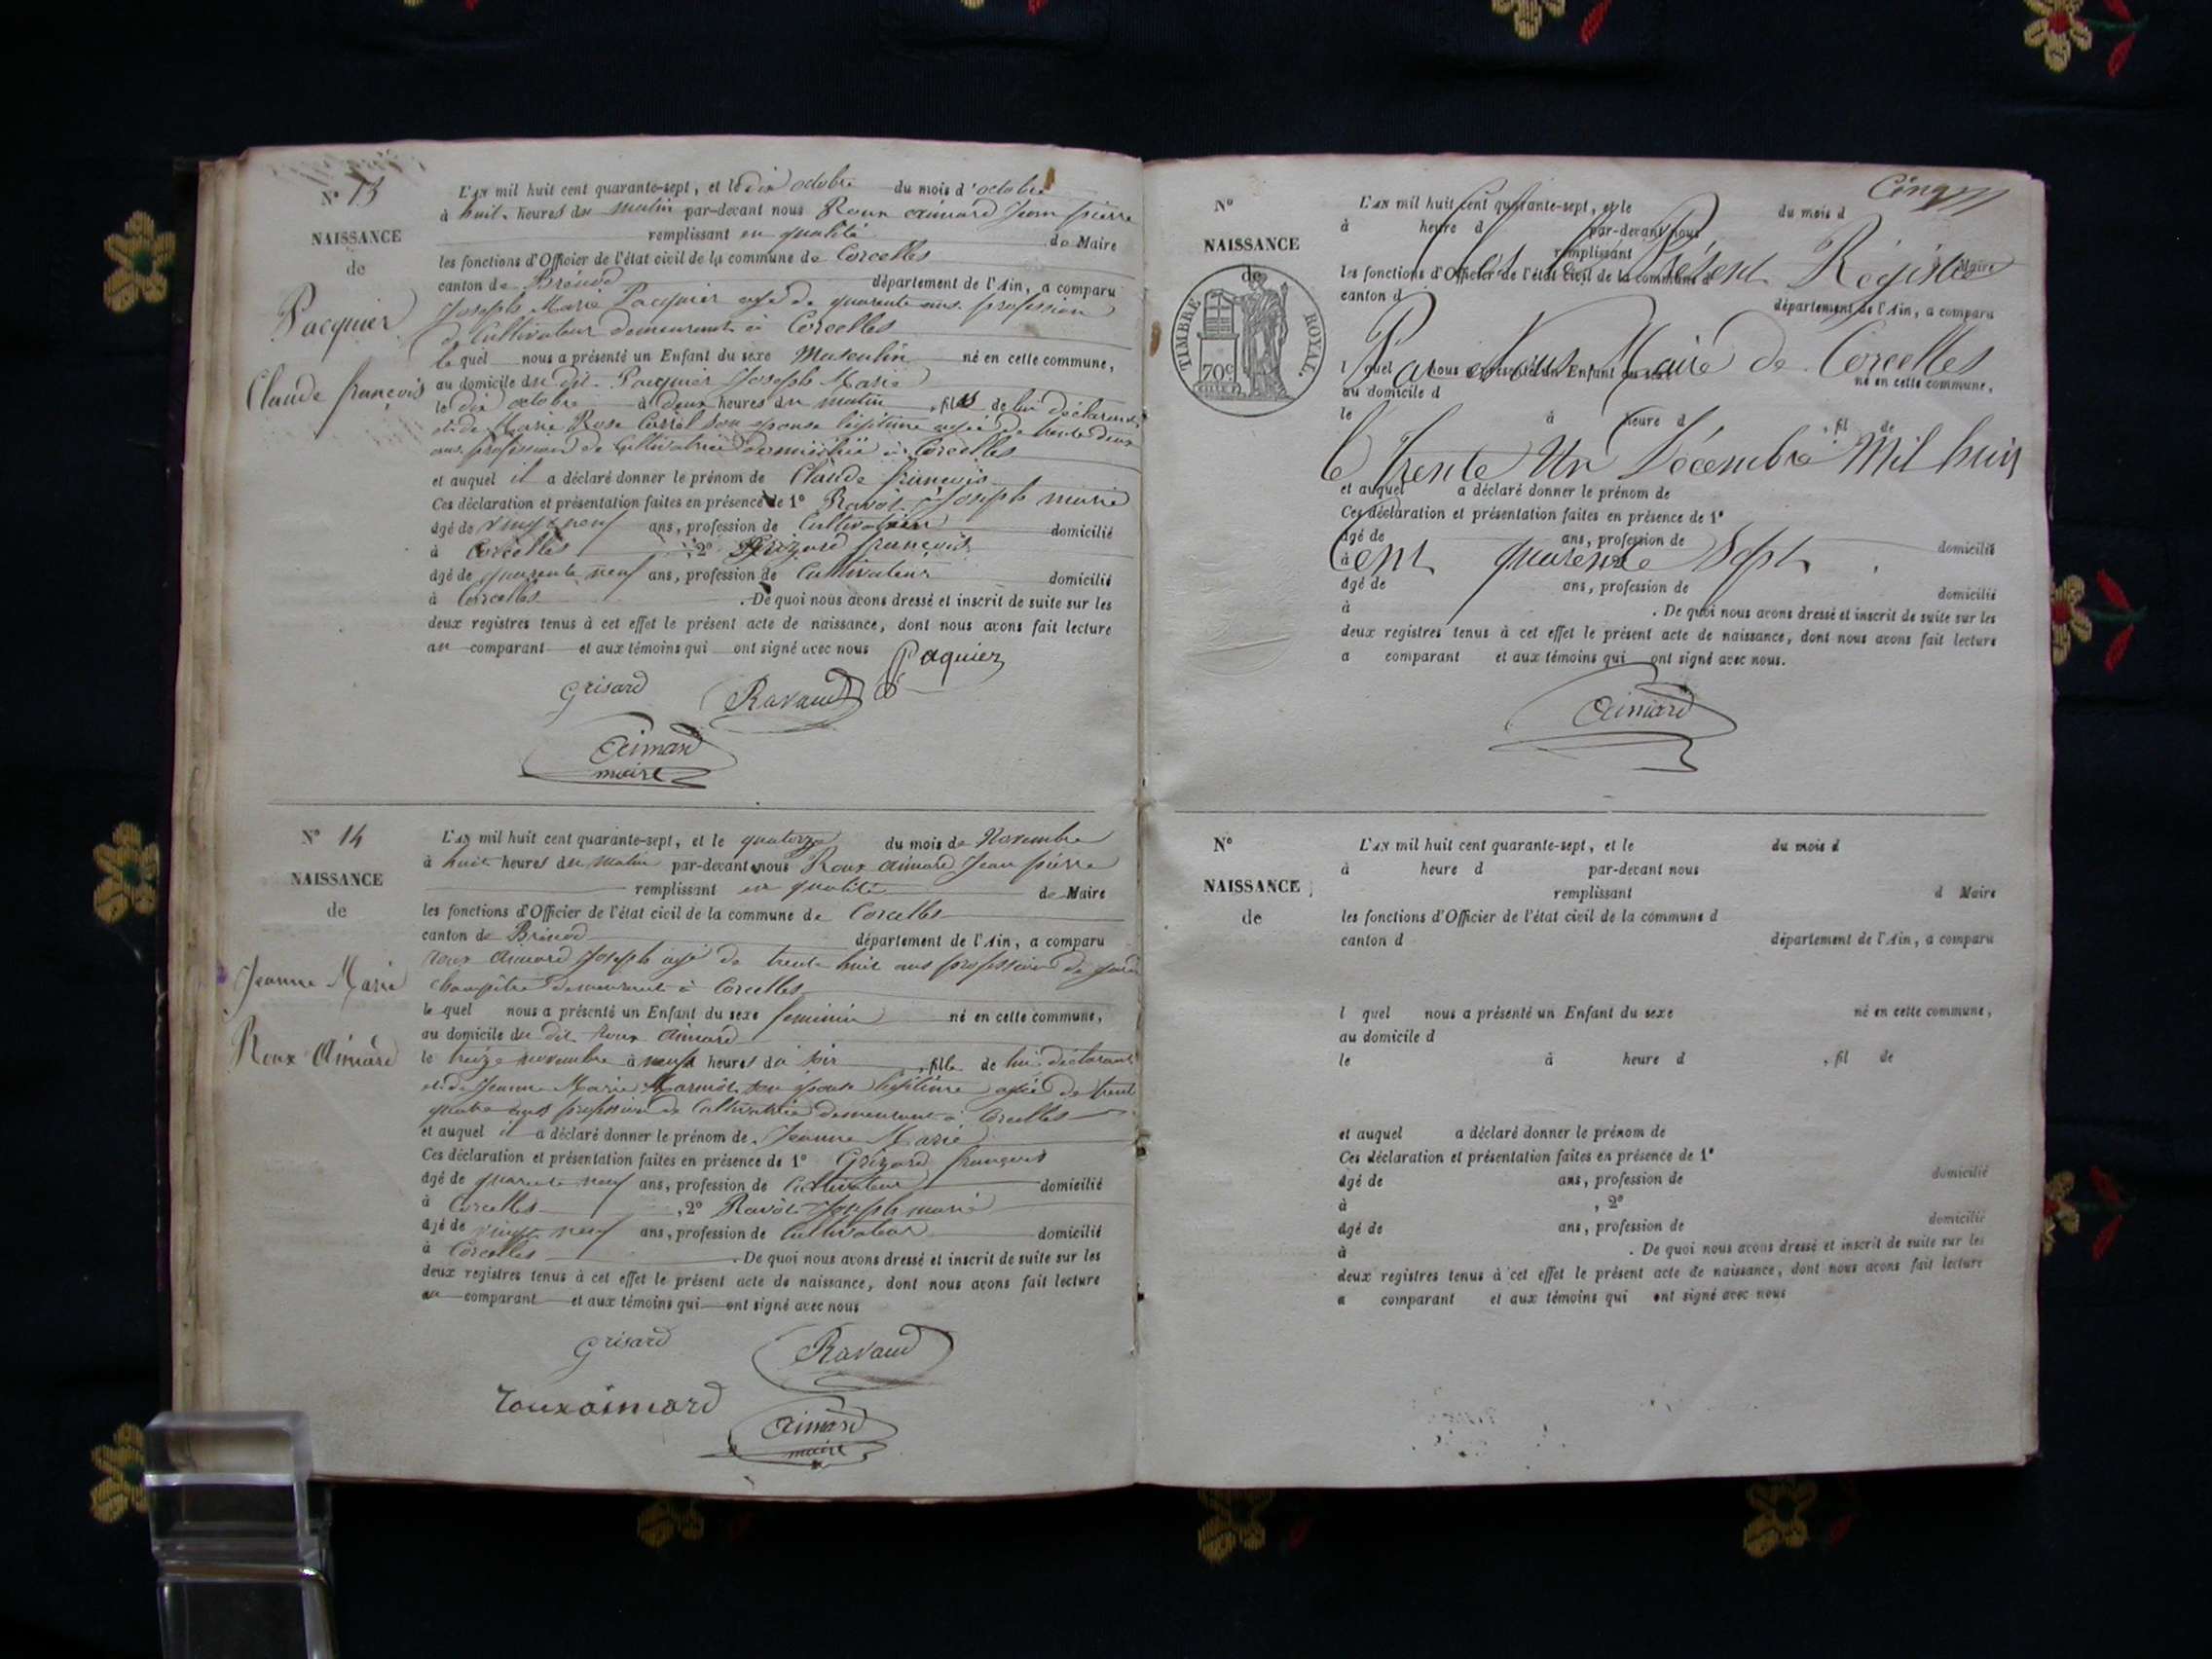 N° 13
NAISSANCE
de
Pacquier
Claude françois
L'AN mil huit cent quarante-sept, et le dix octobre du mois d'octobre
à huit heures du matin par-devant nous Roux aimard Jean pierre
remplissant en qualité de Maire
les fonctions d'Officier de l'état civil de la commune de Corcelles
canton de Brénod département de l'Ain, a comparu
Joseph Marie Pacquier agé de quarente ans profession
de Cultivateur demeurant à Corcelles
le quel nous a présenté un Enfant du sexe Masculin né en cette commune,
au domicile du dit Pacquier Joseph Marie
le dix octobre à deux heures du matin, fils de lui déclarant
et de Marie Rose son épouse légitime agée de trente deux
ans profession de Cultivatrice domiciliée à Corcelles
et auquel il a déclaré donner le prénom de Claude françois
Ces déclaration et présentation faites en présence de 1° Ravot Joseph marie
âgé de vingt neuf ans, profession de Cultivateur domicilié
à Corcelles, 2° Grizard françois
âgé de quarente neuf ans, profession de Cultivateur domicilié
à Corcelles. De quoi nous avons dressé et inscrit de suite sur les
deux registres tenus à cet effet le présent acte de naissance, dont nous avons fait lecture
au comparant et aux témoins qui ont signé avec nous
Paquier
Grisard Ravaud
Aimard
maire
N° 14
NAISSANCE
de
Jeanne Marie
Roux Aimard
L'AN mil huit cent quarante-sept, et le quatorze du mois de Novembre
à huit heures du matin par-devant nous Roux aimard Jean pierre
remplissant en qualité de Maire
les fonctions d'Officier de l'état civil de la commune de Corcelles
canton de Brénod département de l'Ain, a comparu
roux aimard Joseph agé de trente huit ans profession de garde
Champêtre demeurant à Corcelles
le quel nous a présenté un Enfant du sexe feminin né en cette commune,
au domicile du dit roux aimard
le treize novembre à neuf heures du soir, fille de lui déclarant
et de Jeanne Marie son épouse légitime agée de trente
quatre ans profession de Cultivatrice demeurant à Corcelles
et auquel il a déclaré donner le prénom de Jeanne Marie
Ces déclaration et présentation faites en présence de 1° Grizard françois
âgé de quarente neuf ans, profession de Cultivateur domicilié
à Corcelles, 2° Ravot Joseph marie
âgé de vingt neuf ans, profession de Cultivateur domicilié
à Corcelles. De quoi nous avons dressé et inscrit de suite sur les
deux registres tenus à cet effet le présent acte de naissance, dont nous avons fait lecture
au comparant et aux témoins qui ont signé avec nous
Grisard Ravaud
rouxaimard
Aimard
maire
Cinq
N°
NAISSANCE
de
TIMBRE ROYAL.
70c
L'AN mil huit cent quarante-sept, et le du mois d
à heure d par-devant nous
remplissant d Maire
Clos le Présent Régistre
les fonctions d'Officier de l'état civil de la commune d
canton d département de l'Ain, a comparu
Par Nous Maire de Corcelles
l quel nous a présenté un Enfant du sexe né en cette commune,
au domicile d
le à heure d, fil de
le trente Un Décembre Mil huit
et auquel a déclaré donner le prénom de
Ces déclaration et présentation faites en présence de 1°
âgé de ans, profession de domicilié
à, 2°
Cent quarente Sept
âgé de ans, profession de domicilié
à. De quoi nous avons dressé et inscrit de suite sur les
deux registres tenus à cet effet le présent acte de naissance, dont nous avons fait lecture
a comparant et aux témoins qui ont signé avec nous.
Aimard
N°
NAISSANCE
de
L'AN mil huit cent quarante-sept, et le du mois d
à heure d par-devant nous
remplissant d Maire
les fonctions d'Officier de l'état civil de la commune d
canton d département de l'Ain, a comparu
l quel nous a présenté un Enfant du sexe né en cette commune,
au domicile d
le à heure d, fil de
et auquel a déclaré donner le prénom de
Ces déclaration et présentation faites en présence de 1°
âgé de ans, profession de domicilié
à, 2°
âgé de ans, profession de domicilié
à. De quoi nous avons dressé et inscrit de suite sur les
deux registres tenus à cet effet le présent acte de naissance, dont nous avons fait lecture
a comparant et aux témoins qui ont signé avec nous